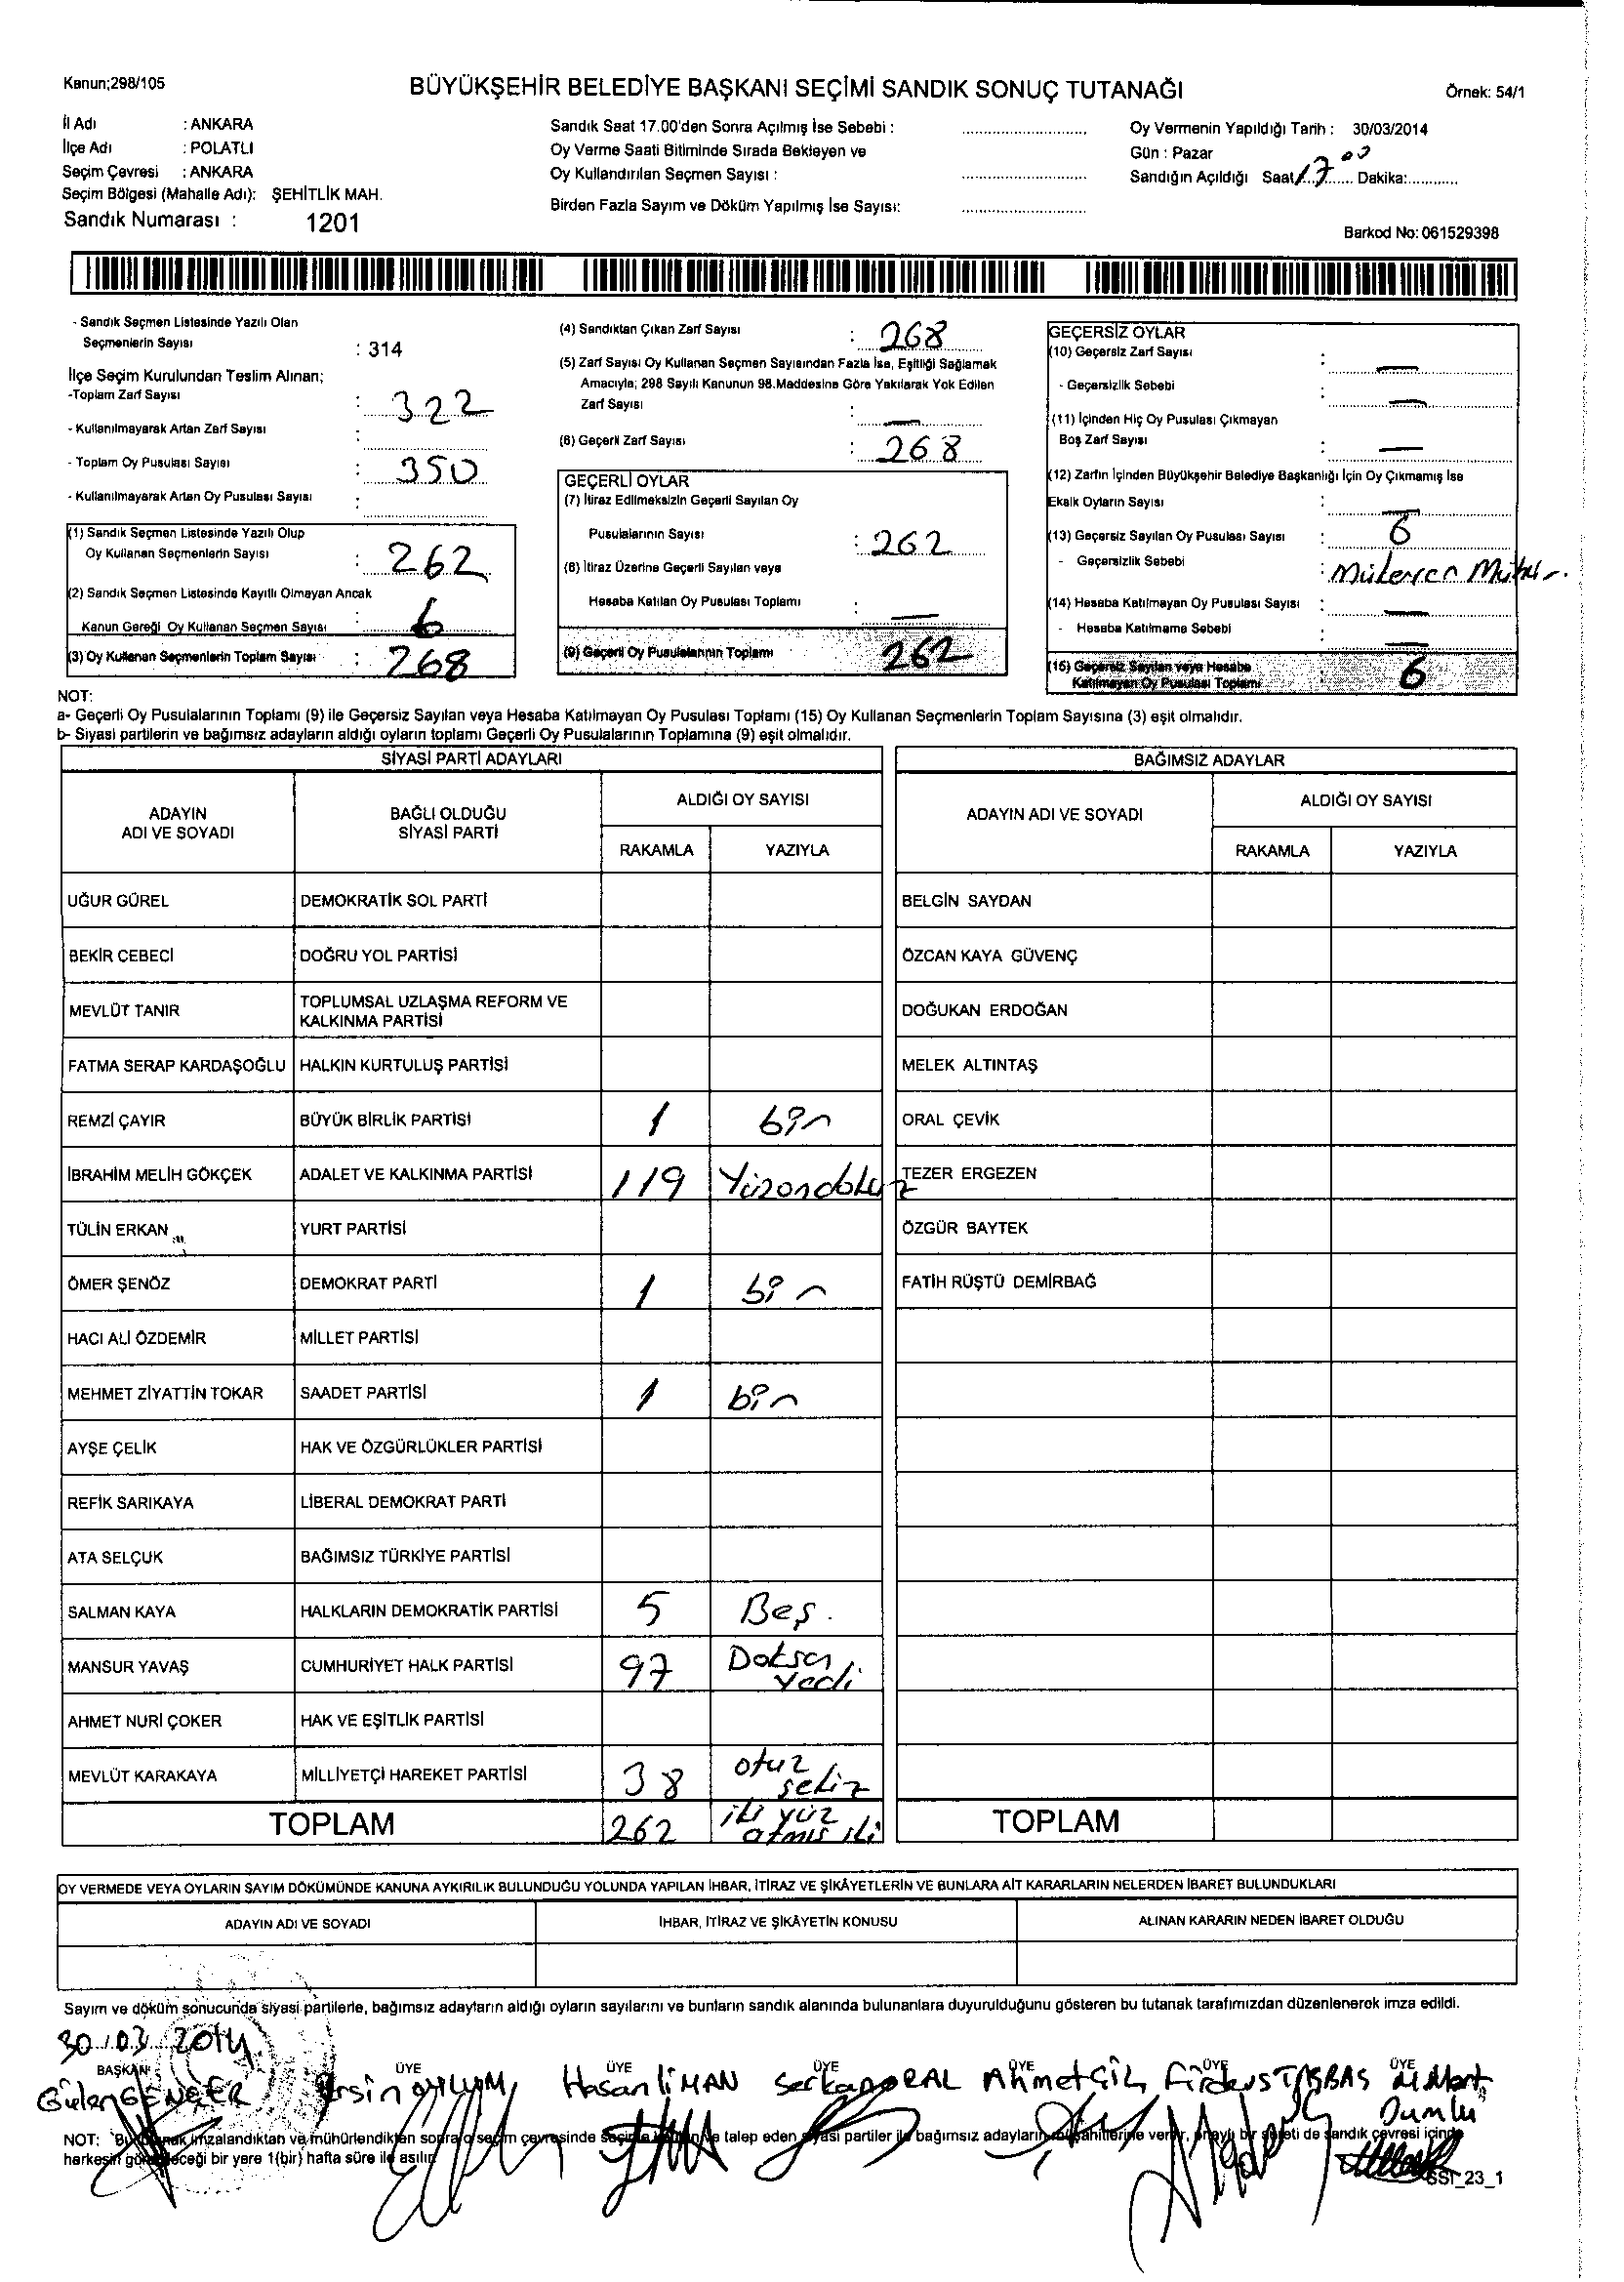 Kanun;298/105
BÜYÜKŞEHİR BELEDİYE BAŞKANI SEÇİMİ SANDIK SONUÇ TUTANAĞI
Örnek: 54/1
İl Adı : ANKARA
İlçe Adı : POLATLI
Seçim Çevresi : ANKARA
Seçim Bölgesi (Mahalle Adı): ŞEHİTLİK MAH.
Sandık Numarası : 1201
Sandık Saat 17.00'den Sonra Açılmış İse Sebebi :
Oy Verme Saati Bitiminde Sırada Bekleyen ve
Oy Kullandırılan Seçmen Sayısı :
Birden Fazla Sayım ve Döküm Yapılmış İse Sayısı:
Oy Vermenin Yapıldığı Tarih : 30/03/2014
Gün : Pazar
Sandığın Açıldığı Saat 17 00 Dakika:
Barkod No: 061529398
- Sandık Seçmen Listesinde Yazılı Olan
Seçmenlerin Sayısı : 314
İlçe Seçim Kurulundan Teslim Alınan;
-Toplam Zarf Sayısı : 322
- Kullanılmayarak Artan Zarf Sayısı :
- Toplam Oy Pusulası Sayısı : 350
- Kullanılmayarak Artan Oy Pusulası Sayısı :
(1) Sandık Seçmen Listesinde Yazılı Olup
Oy Kullanan Seçmenlerin Sayısı : 262
(2) Sandık Seçmen Listesinde Kayıtlı Olmayan Ancak
Kanun Gereği Oy Kullanan Seçmen Sayısı : 6
(3) Oy Kullanan Seçmenlerin Toplam Sayısı : 268
(4) Sandıktan Çıkan Zarf Sayısı : 268
(5) Zarf Sayısı Oy Kullanan Seçmen Sayısından Fazla İse, Eşitliği Sağlamak
Amacıyla; 298 Sayılı Kanunun 98.Maddesine Göre Yakılarak Yok Edilen
Zarf Sayısı : —
(6) Geçerli Zarf Sayısı : 268
GEÇERLİ OYLAR
(7) İtiraz Edilmeksizin Geçerli Sayılan Oy
Pusulalarının Sayısı : 262
(8) İtiraz Üzerine Geçerli Sayılan veya
Hesaba Katılan Oy Pusulası Toplamı : —
(9) Geçerli Oy Pusulalarının Toplamı 262
GEÇERSİZ OYLAR
(10) Geçersiz Zarf Sayısı : —
- Geçersizlik Sebebi : —
(11) İçinden Hiç Oy Pusulası Çıkmayan
Boş Zarf Sayısı : —
(12) Zarfın İçinden Büyükşehir Belediye Başkanlığı İçin Oy Çıkmamış İse
Eksik Oyların Sayısı : —
(13) Geçersiz Sayılan Oy Pusulası Sayısı : 6
- Geçersizlik Sebebi :
(14) Hesaba Katılmayan Oy Pusulası Sayısı : —
- Hesaba Katılmama Sebebi —
(15) Geçersiz Sayılan veya Hesaba
Katılmayan Oy Pusulası Toplamı : 6
NOT:
a- Geçerli Oy Pusulalarının Toplamı (9) ile Geçersiz Sayılan veya Hesaba Katılmayan Oy Pusulası Toplamı (15) Oy Kullanan Seçmenlerin Toplam Sayısına (3) eşit olmalıdır.
b- Siyasi partilerin ve bağımsız adayların aldığı oyların toplamı Geçerli Oy Pusulalarının Toplamına (9) eşit olmalıdır.
SİYASİ PARTİ ADAYLARI
ADAYIN ADI VE SOYADI
BAĞLI OLDUĞU SİYASİ PARTİ
ALDIĞI OY SAYISI
RAKAMLA YAZIYLA
UĞUR GÜREL DEMOKRATİK SOL PARTİ
BEKİR CEBECİ DOĞRU YOL PARTİSİ
MEVLÜT TANIR TOPLUMSAL UZLAŞMA REFORM VE KALKINMA PARTİSİ
FATMA SERAP KARDAŞOĞLU HALKIN KURTULUŞ PARTİSİ
REMZİ ÇAYIR BÜYÜK BİRLİK PARTİSİ 1 bir
İBRAHİM MELİH GÖKÇEK ADALET VE KALKINMA PARTİSİ 119 Yüzondokuz
TÜLİN ERKAN YURT PARTİSİ
ÖMER ŞENÖZ DEMOKRAT PARTİ 1 bir
HACI ALİ ÖZDEMİR MİLLET PARTİSİ
MEHMET ZİYATTİN TOKAR SAADET PARTİSİ 1 bir
AYŞE ÇELİK HAK VE ÖZGÜRLÜKLER PARTİSİ
REFİK SARIKAYA LİBERAL DEMOKRAT PARTİ
ATA SELÇUK BAĞIMSIZ TÜRKİYE PARTİSİ
SALMAN KAYA HALKLARIN DEMOKRATİK PARTİSİ 5 Beş.
MANSUR YAVAŞ CUMHURİYET HALK PARTİSİ 97 Doksan yedi
AHMET NURİ ÇOKER HAK VE EŞİTLİK PARTİSİ
MEVLÜT KARAKAYA MİLLİYETÇİ HAREKET PARTİSİ 38 otuz sekiz
TOPLAM 262 iki yüz atmış iki
BAĞIMSIZ ADAYLAR
ADAYIN ADI VE SOYADI
ALDIĞI OY SAYISI
RAKAMLA YAZIYLA
BELGİN SAYDAN
ÖZCAN KAYA GÜVENÇ
DOĞUKAN ERDOĞAN
MELEK ALTINTAŞ
ORAL ÇEVİK
TEZER ERGEZEN
ÖZGÜR BAYTEK
FATİH RÜŞTÜ DEMİRBAĞ
TOPLAM
OY VERMEDE VEYA OYLARIN SAYIM DÖKÜMÜNDE KANUNA AYKIRILIK BULUNDUĞU YOLUNDA YAPILAN İHBAR, İTİRAZ VE ŞİKÂYETLERİN VE BUNLARA AİT KARARLARIN NELERDEN İBARET BULUNDUKLARI
ADAYIN ADI VE SOYADI
İHBAR, İTİRAZ VE ŞİKÂYETİN KONUSU
ALINAN KARARIN NEDEN İBARET OLDUĞU
Sayım ve döküm sonucunda siyasi partilerle, bağımsız adayların aldığı oyların sayılarını ve bunların sandık alanında bulunanlara duyurulduğunu gösteren bu tutanak tarafımızdan düzenlenerek imza edildi.
30/03/2014
BAŞKAN ÜYE ÜYE ÜYE ÜYE ÜYE ÜYE
Hasan LİMAN Serkan ORAL Ahmet ÇİL
NOT: Bu tutanak imzalandıktan ve mühürlendikten sonra o seçim çevresinde talep eden siyasi partiler ile bağımsız adayların müşahitlerine verilir, onaylı bir sureti de sandık çevresi içinde
herkesin göreceği bir yere 1(bir) hafta süre ile asılır.
SST_23_1